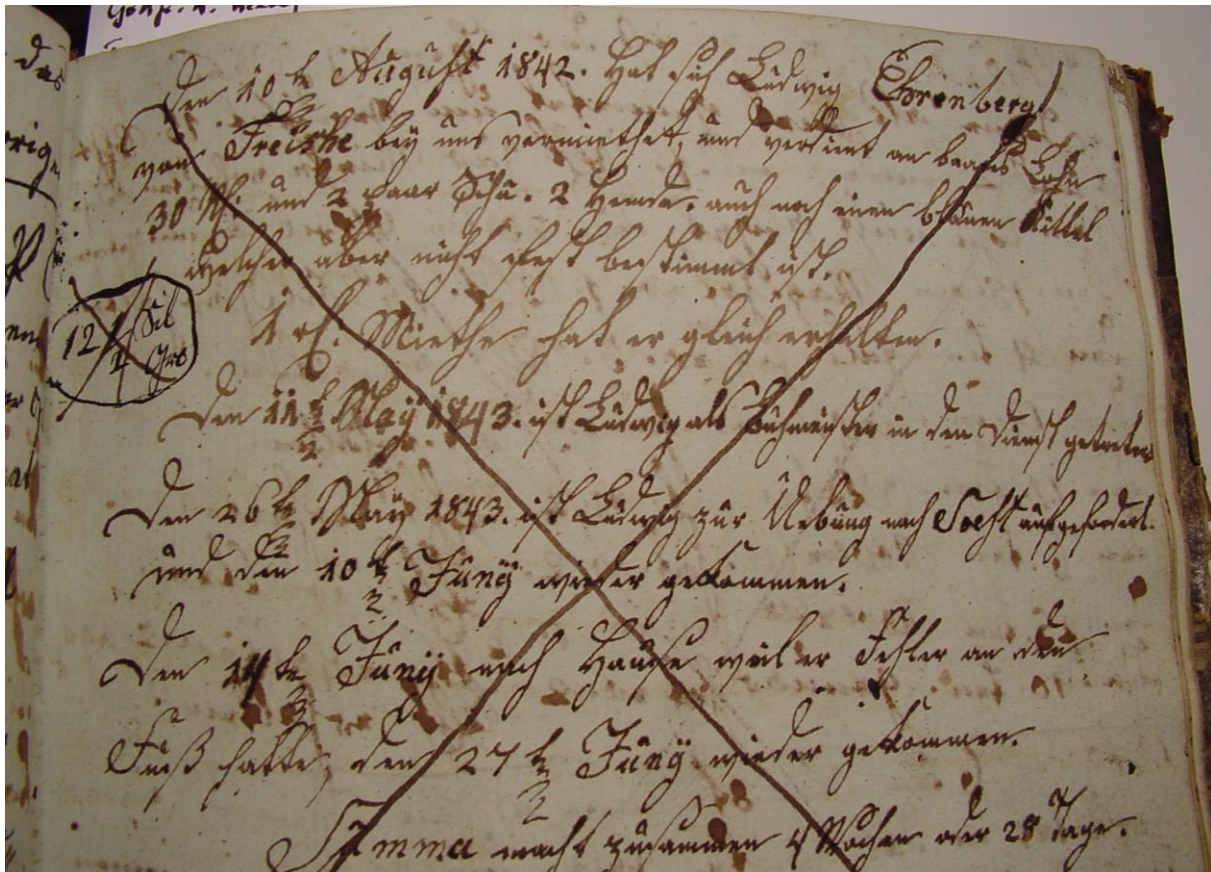 Den 10te August 1842. Hat sich Ludwig Ehrenberg
von Freiske bey uns vermiethet, und verdient an baares Lohn
30 rh. und 2 paar Schu. 2 Hemde. auch noch einen blauen Kittel
welcher aber nicht fest bestimmt ist.
12 1/2 Sil Gro
1 rh. Miethe hat er gleich erhalten.
Den 11te May 1843. ist Ludwig als in den Dienst getreten
Den 26te May 1843. ist Ludwig zur Uebung nach Soest aufgefordert.
und den 10te Juny wieder gekommen.
Den 14te Juny nach Hause weil er Fehler an den
Fuß hatte, den 27te Juny wieder gekommen.
Summa macht zusammen 4 Wochen oder 28 Tage.